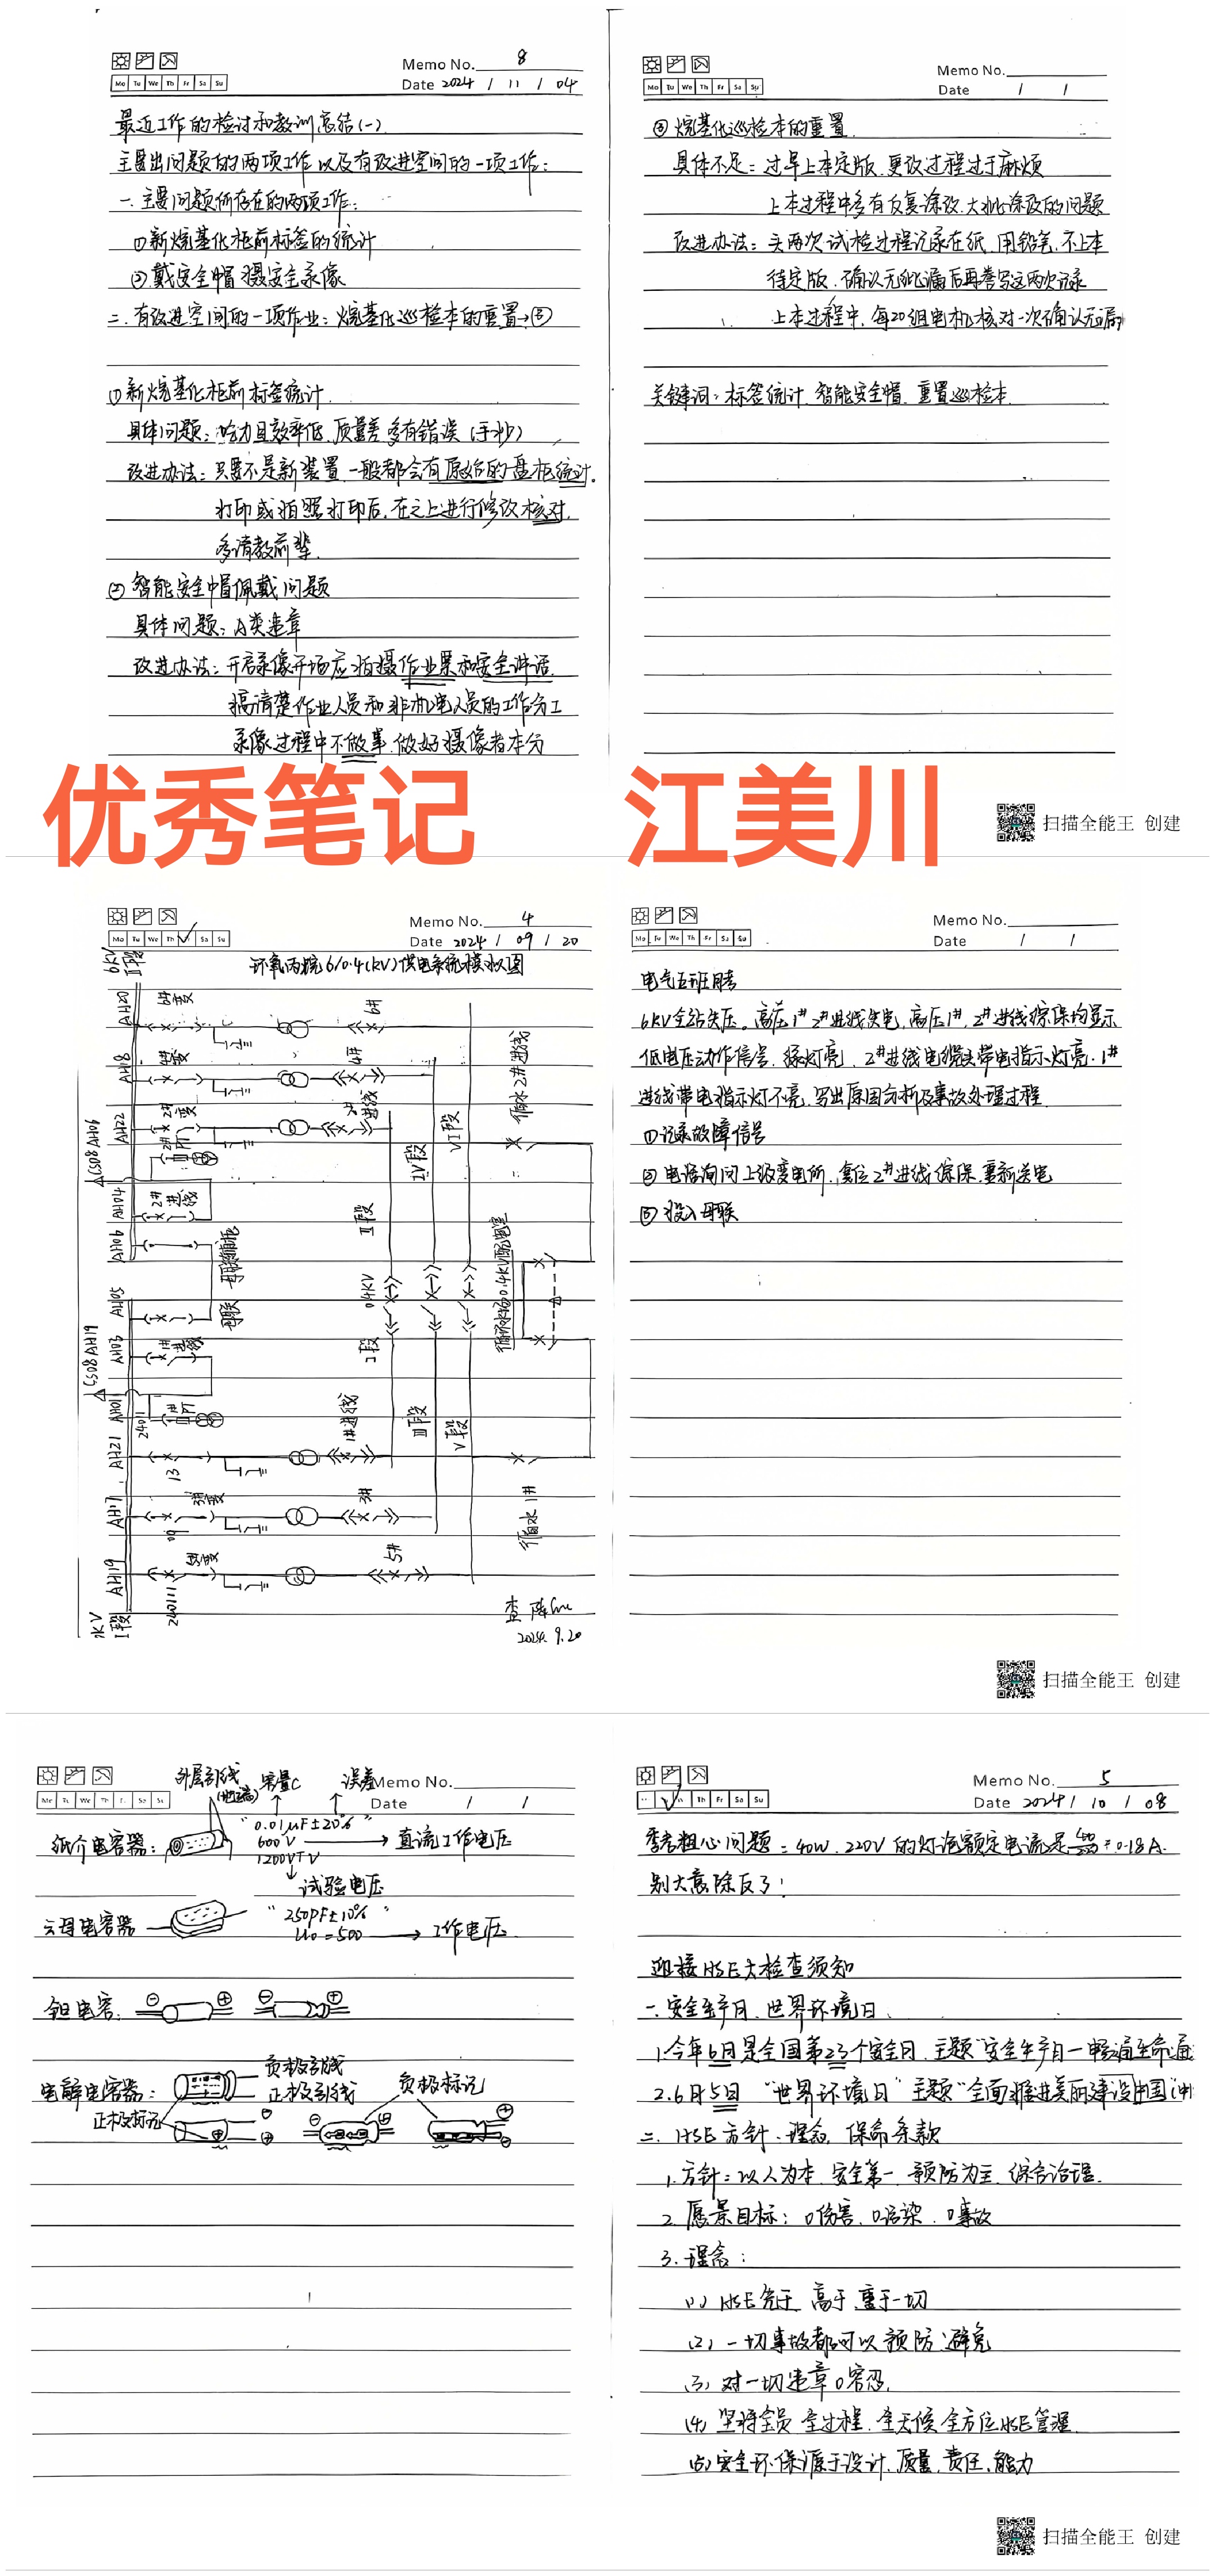 Memo No. 8
Mo Tu We Th Fr Sa Su
Date 2024 / 11 / 04
最近工作的检讨和教训总结(一)
主要出问题的两项工作以及有改进空间的一项工作:
一.主要问题所存在的两项工作:
①新烷基化柜前标签的统计
②戴安全帽摄安全录像
二.有改进空间的一项作业:烷基化巡检本的重置→③
①新烷基化柜前标签统计
具体问题:吃力且效率低.质量差多有错误(手抄)
改进办法:只要不是新装置.一般都会有原始的盘柜统计。
打印或拍照打印后.在之上进行修改核对.
多请教前辈.
②智能安全帽佩戴问题
具体问题:A类违章
改进办法:开启录像开场应拍摄作业票和安全讲话.
搞清楚作业人员和非机电人员的工作分工
录像过程中不做事.做好摄像者本分
Memo No.
Mo Tu We Th Fr Sa Su
Date / /
③烷基化巡检本的重置
具体不足:过早上本定版.更改过程过于麻烦
上本过程中多有反复涂改.大批涂改的问题
改进办法:头两次试检过程记录在纸.用铅笔.不上本
待定版.确认无纰漏后再誊写这两次记录
上本过程中.每20组电机核对一次确认无漏
关键词:标签统计.智能安全帽.重置巡检本
优秀笔记 江美川
扫描全能王 创建
Memo No. 4
Mo Tu We Th Sa Su
Date 2024 / 09 / 20
环氧丙烷6/0.4(kV)供电系统模拟图
6KV
II段
AH20
AH18
AH22
CS08AH06
AH04
AH06
AH05
CS08AH19
AH03
AH01
AH21
AH17
AH19
I段
6#变
6#
4#变
4#
2#变
2#进线
2#PT
2#进线
母联
1#进线
1#PT
24011
1#进线
13
3#变
3#
09
5#变
5#
240111
II段
IV段
VI段
0.4KV
I段
III段
V段
循环水2#进线
循环水场0.4KV配电室
循环水1#
2024.9.20
扫描全能王 创建
Memo No.
Mo Tu We Th Fr Sa Su
Date / /
电气五班月考
6KV全站失压。高压1#2#进线失电,高压1#,2#进线综保均显示
低电压动作信号.绿灯亮.2#进线电缆头带电指示灯亮.1#
进线带电指示灯不亮.写出原因分析及事故处理过程
①记录故障信号
②电话询问上级变电所.复位2#进线综保.重新送电
③投入母联
Memo No.
Date / /
外层引线
(地端)
容量C
误差
纸介电容器:
"0.01μF±20%
600V → 直流工作电压
1200VTV
试验电压
云母电容器
"250PF±10%"
U0=500 → 工作电压
钽电容:
电解电容器:
负极引线
正极引线
负极标记
正极标记
Memo No. 5
Th Fr Sa Su
Date 2024 / 10 / 08
季考粗心问题:40W.220V的灯泡额定电流是40/220=0.18A.
别大意除反了!
迎接HSE大检查须知
一.安全生产月.世界环境日.
1.今年6月是全国第23个安全月.主题"安全生产月一畅通生命通
2.6月5日"世界环境日"主题"全面推进美丽中国建设
二.HSE方针.理念.保命条款
1.方针:以人为本.安全第一.预防为主.综合治理.
2.愿景目标:0伤害.0污染.0事故
3.理念:
(1)HSE先于.高于.重于一切
(2)一切事故都可以预防.避免
(3)对一切违章0容忍.
(4)坚持全员.全过程.全天候.全方位HSE管理
(5)安全环保源于设计.质量.责任.能力
扫描全能王 创建